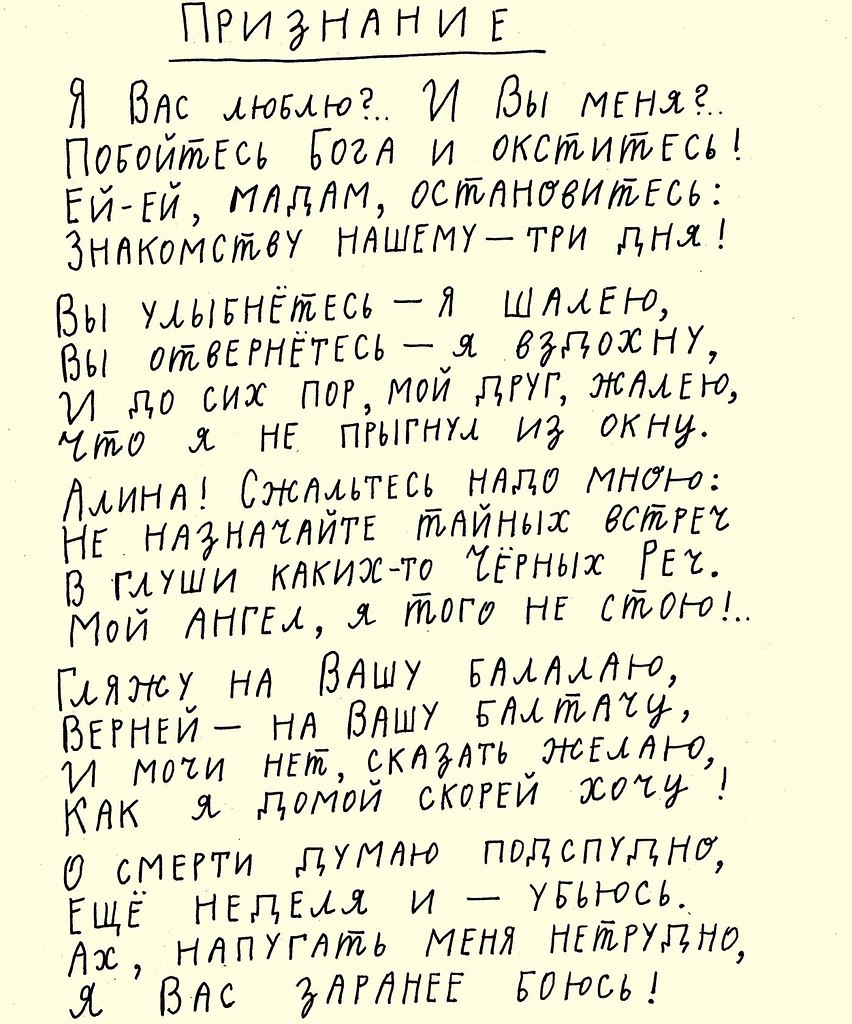 Признание
Я Вас люблю?.. И Вы меня?..
Побойтесь Бога и окститесь!
Ей-ей, мадам, остановитесь:
Знакомству нашему — три дня!
Вы улыбнётесь — я шалею,
Вы отвернётесь — я вздохну,
И до сих пор, мой друг, жалею,
Что я не прыгнул из окну.
Алина! Сжальтесь надо мною:
Не назначайте тайных встреч
В глуши каких-то Чёрных Реч.
Мой ангел, я того не стою!..
Гляжу на Вашу балалаю,
Верней — на Вашу балтачу,
И мочи нет, сказать желаю,
Как я домой скорей хочу!
О смерти думаю подспудно,
Ещё неделя и — убьюсь.
Ах, напугать меня нетрудно,
Я Вас заранее боюсь!